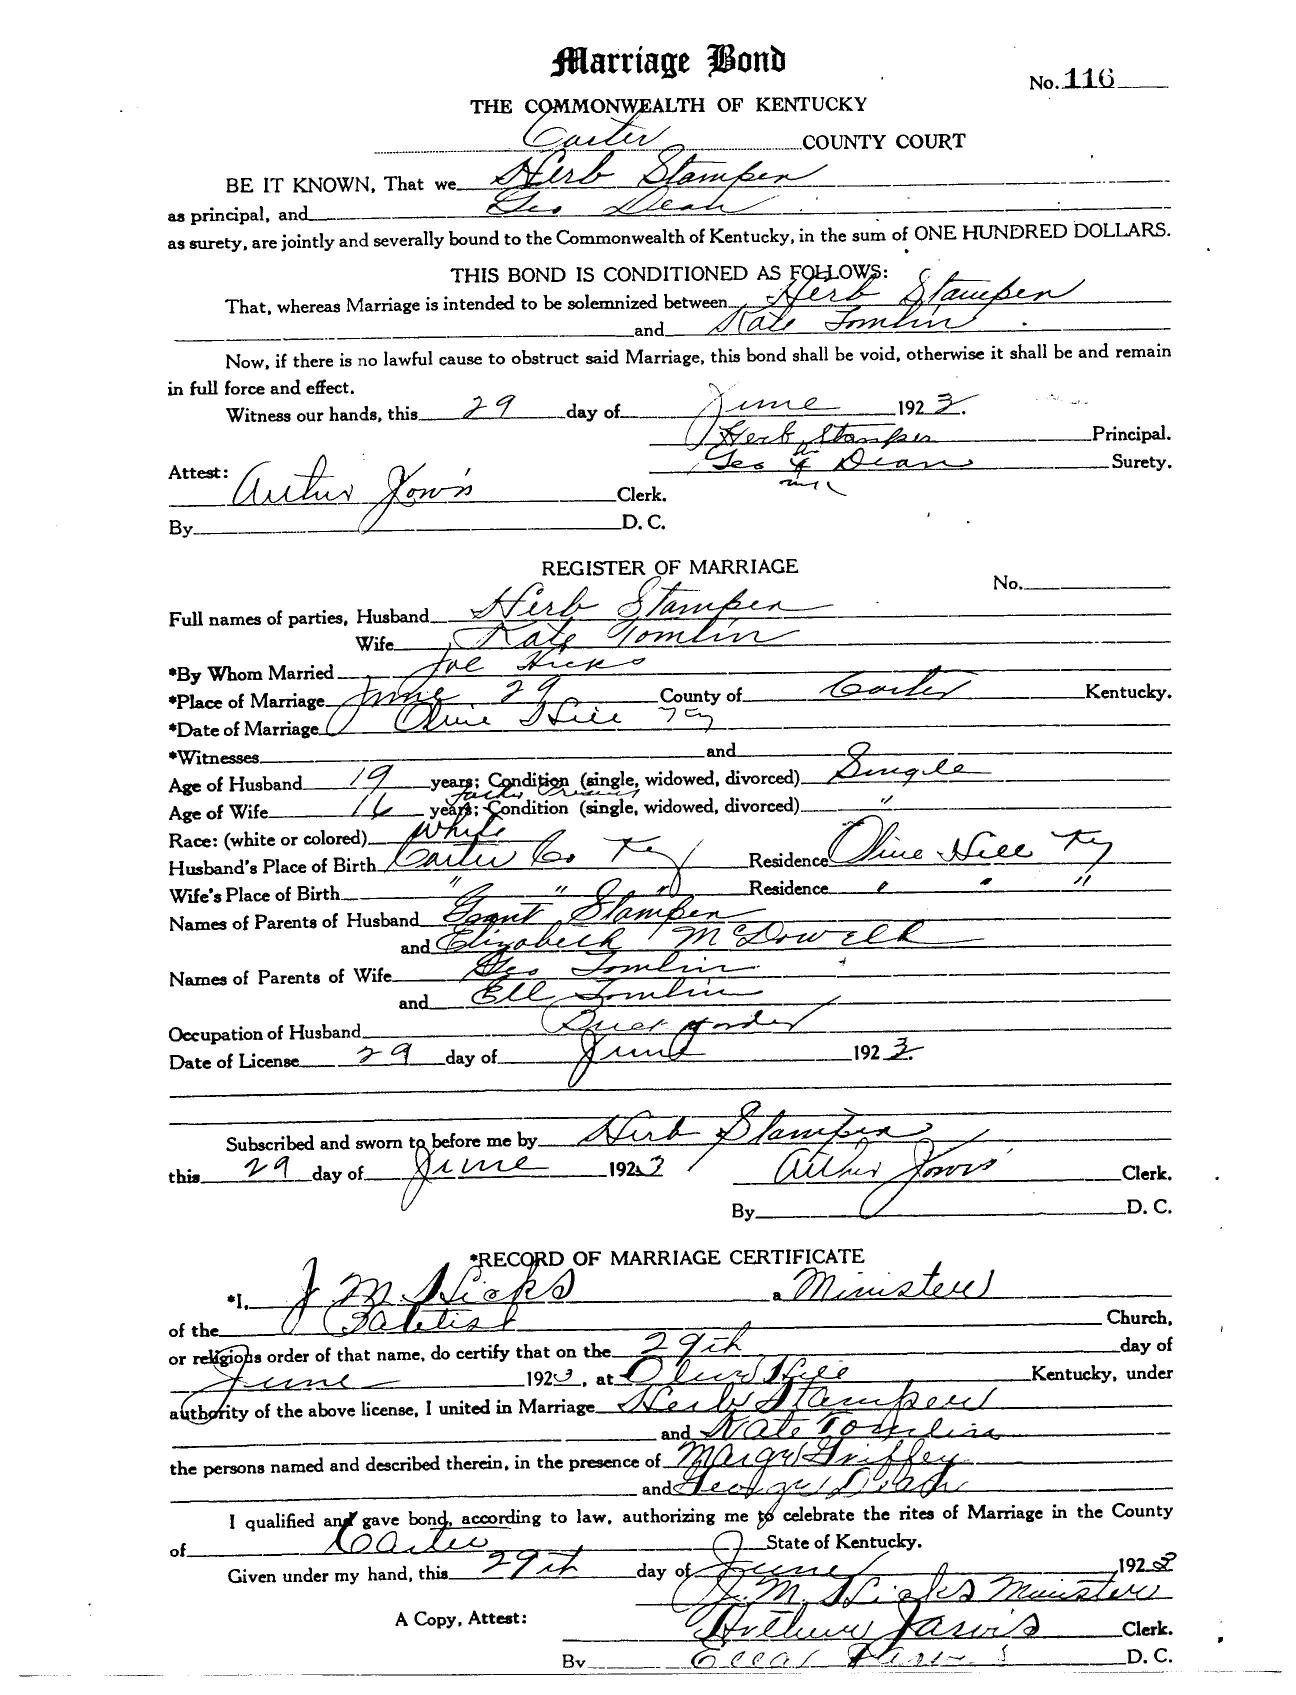 Marriage Bond
No. 116
THE COMMONWEALTH OF KENTUCKY
Carter COUNTY COURT
BE IT KNOWN, That we Herb Stamper
as principal, and Geo Dean
as surety, are jointly and severally bound to the Commonwealth of Kentucky, in the sum of ONE HUNDRED DOLLARS.
THIS BOND IS CONDITIONED AS FOLLOWS:
That, whereas Marriage is intended to be solemnized between Herb Stamper
and Kate Tomlin
Now, if there is no lawful cause to obstruct said Marriage, this bond shall be void, otherwise it shall be and remain
in full force and effect.
Witness our hands, this 29 day of June 1923.
Herb Stamper Principal.
Geo Dean Surety.
Attest: Arthur Jarvis Clerk.
By D. C.
REGISTER OF MARRIAGE
No.
Full names of parties, Husband Herb Stamper
Wife Kate Tomlin
*By Whom Married Joe Hicks
*Place of Marriage June 29 County of Carter Kentucky.
*Date of Marriage Olive Hill Ky
*Witnesses and
Age of Husband 19 years; Condition (single, widowed, divorced) Single
Age of Wife 16 years; Condition (single, widowed, divorced) "
Race: (white or colored) White
Husband's Place of Birth Carter Co Ky Residence Olive Hill Ky
Wife's Place of Birth " " " Residence " " "
Names of Parents of Husband Grant Stamper
and Elizabeth McDowell
Names of Parents of Wife Geo Tomlin
and Ell Tomlin
Occupation of Husband
Date of License 29 day of June 1923.
Subscribed and sworn to before me by Herb Stamper
this 29 day of June 1923 Arthur Jarvis Clerk.
By D. C.
*RECORD OF MARRIAGE CERTIFICATE
*I, J M Hicks a Minister
of the Babtist Church,
or religious order of that name, do certify that on the 29th day of
June 1923, at Olive Hill Kentucky, under
authority of the above license, I united in Marriage Herb Stamper
and Kate Tomlin
the persons named and described therein, in the presence of Griffey
and George Dean
I qualified and gave bond, according to law, authorizing me to celebrate the rites of Marriage in the County
of Carter State of Kentucky.
Given under my hand, this 29th day of June 1923
J. M. Hicks Minister
A Copy, Attest: Arthur Jarvis Clerk.
By D. C.